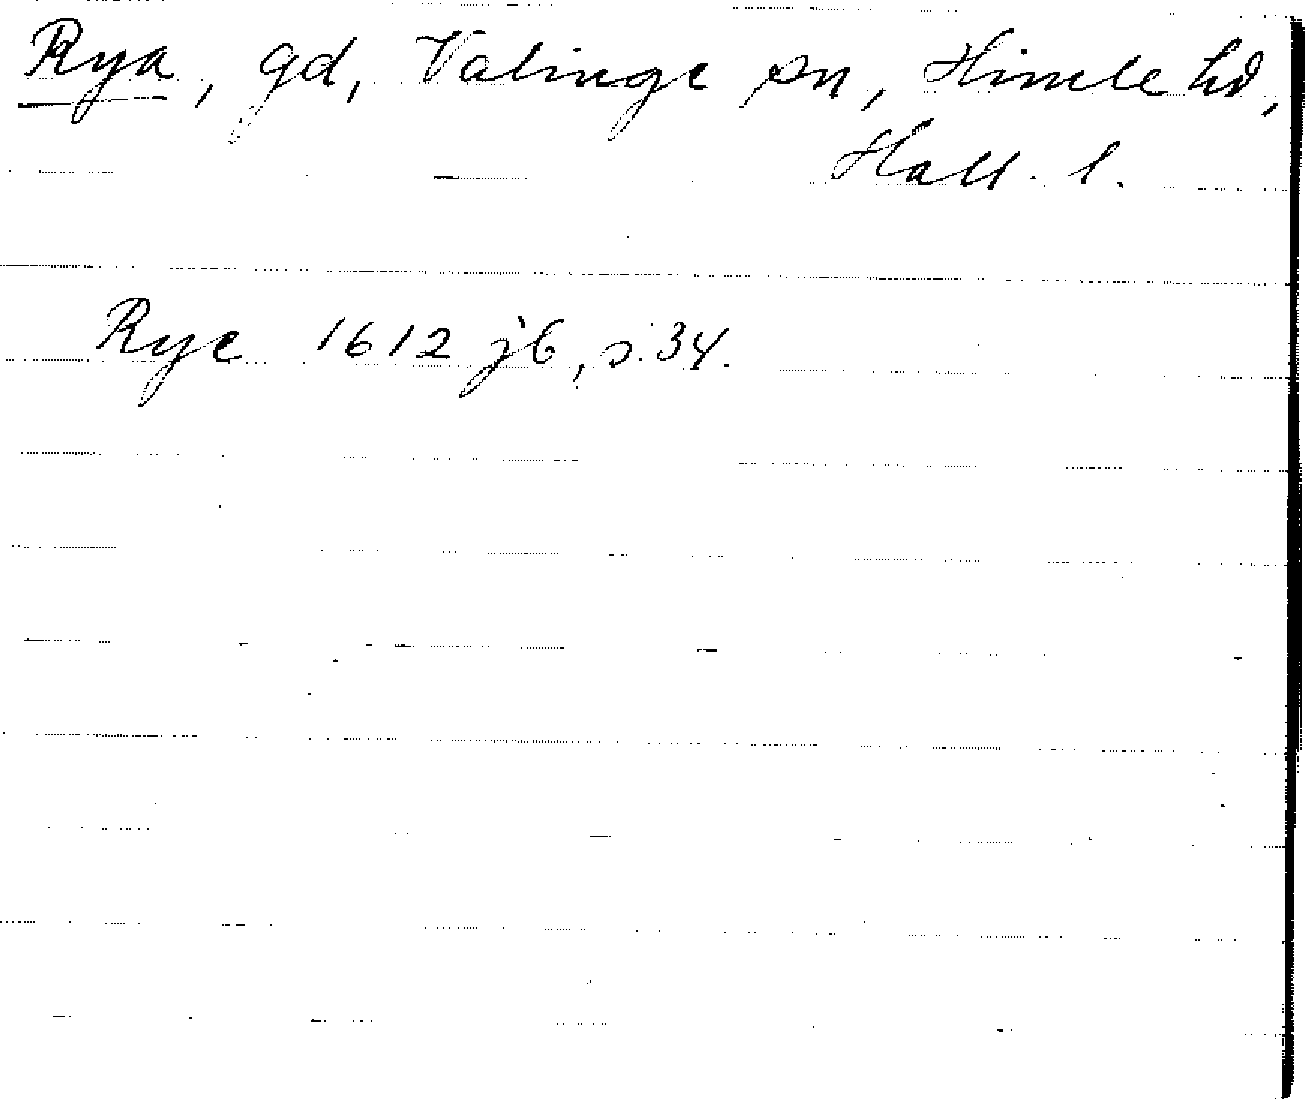 Rya, gd, Valinge sn, Himle hd,
Hall. l.
Rye 1612 jb, s. 34.